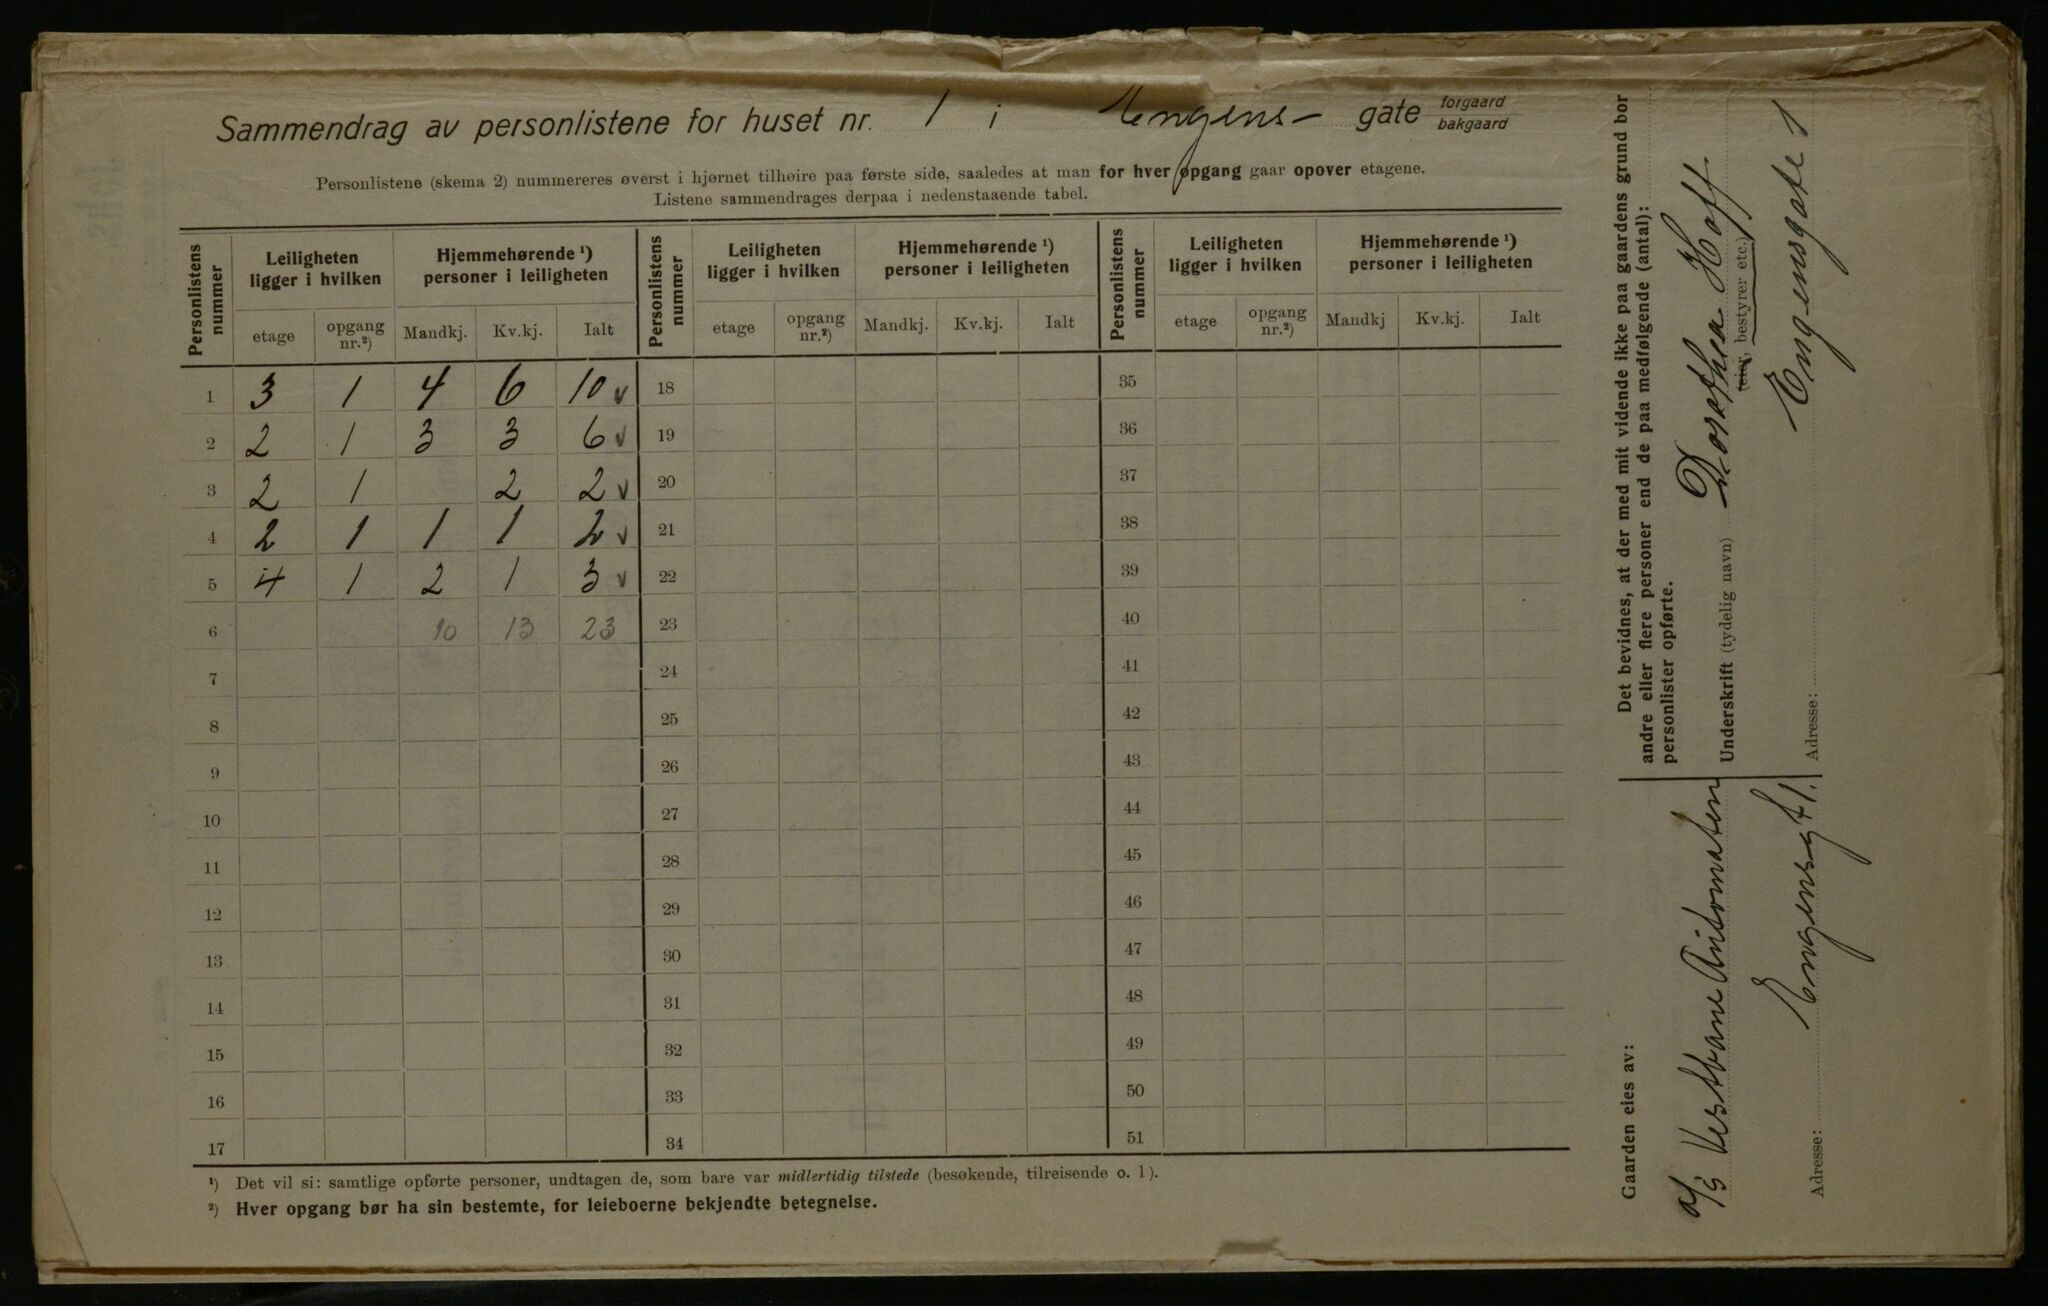 Sammendrag av personlistene for huset nr. 1 i Engens- gate forgaard bakgaard
Personlistene (skema 2) nummereres øverst i hjørnet tilhøire paa første side, saaledes at man for hver opgang gaar opover etagene.
Listene sammendrages derpaa i nedenstaaende tabel.
Personlistens nummer | Leiligheten ligger i hvilken | Hjemmehørende ¹) personer i leiligheten | Personlistens nummer | Leiligheten ligger i hvilken | Hjemmehørende ¹) personer i leiligheten | Personlistens nummer | Leiligheten ligger i hvilken | Hjemmehørende ¹) personer i leiligheten
etage | opgang nr.²) | Mandkj. | Kv.kj. | Ialt | etage | opgang nr.²) | Mandkj. | Kv.kj. | Ialt | etage | opgang nr.²) | Mandkj | Kv.kj. | Ialt
1 3 1 4 6 10 v 18 35
2 2 1 3 3 6 v 19 36
3 2 1 2 2 v 20 37
4 2 1 1 1 2 v 21 38
5 4 1 2 1 3 v 22 39
6 10 13 23 23 40
7 24 41
8 25 42
9 26 43
10 27 44
11 28 45
12 29 46
13 30 47
14 31 48
15 32 49
16 33 50
17 34 51
¹) Det vil si: samtlige opførte personer, undtagen de, som bare var midlertidig tilstede (besøkende, tilreisende o. l).
²) Hver opgang bør ha sin bestemte, for leieboerne bekjendte betegnelse.
Gaarden eies av:
a/s Vestbane Automaten
Adresse: Engensgt 1.
Det bevidnes, at der med mit vidende ikke paa gaardens grund bor
andre eller flere personer end de paa medfølgende (antal):
personlister opførte.
Underskrift (tydelig navn) Dorothea Hoff
(eier, bestyrer etc.)
Adresse: Engensgate 1